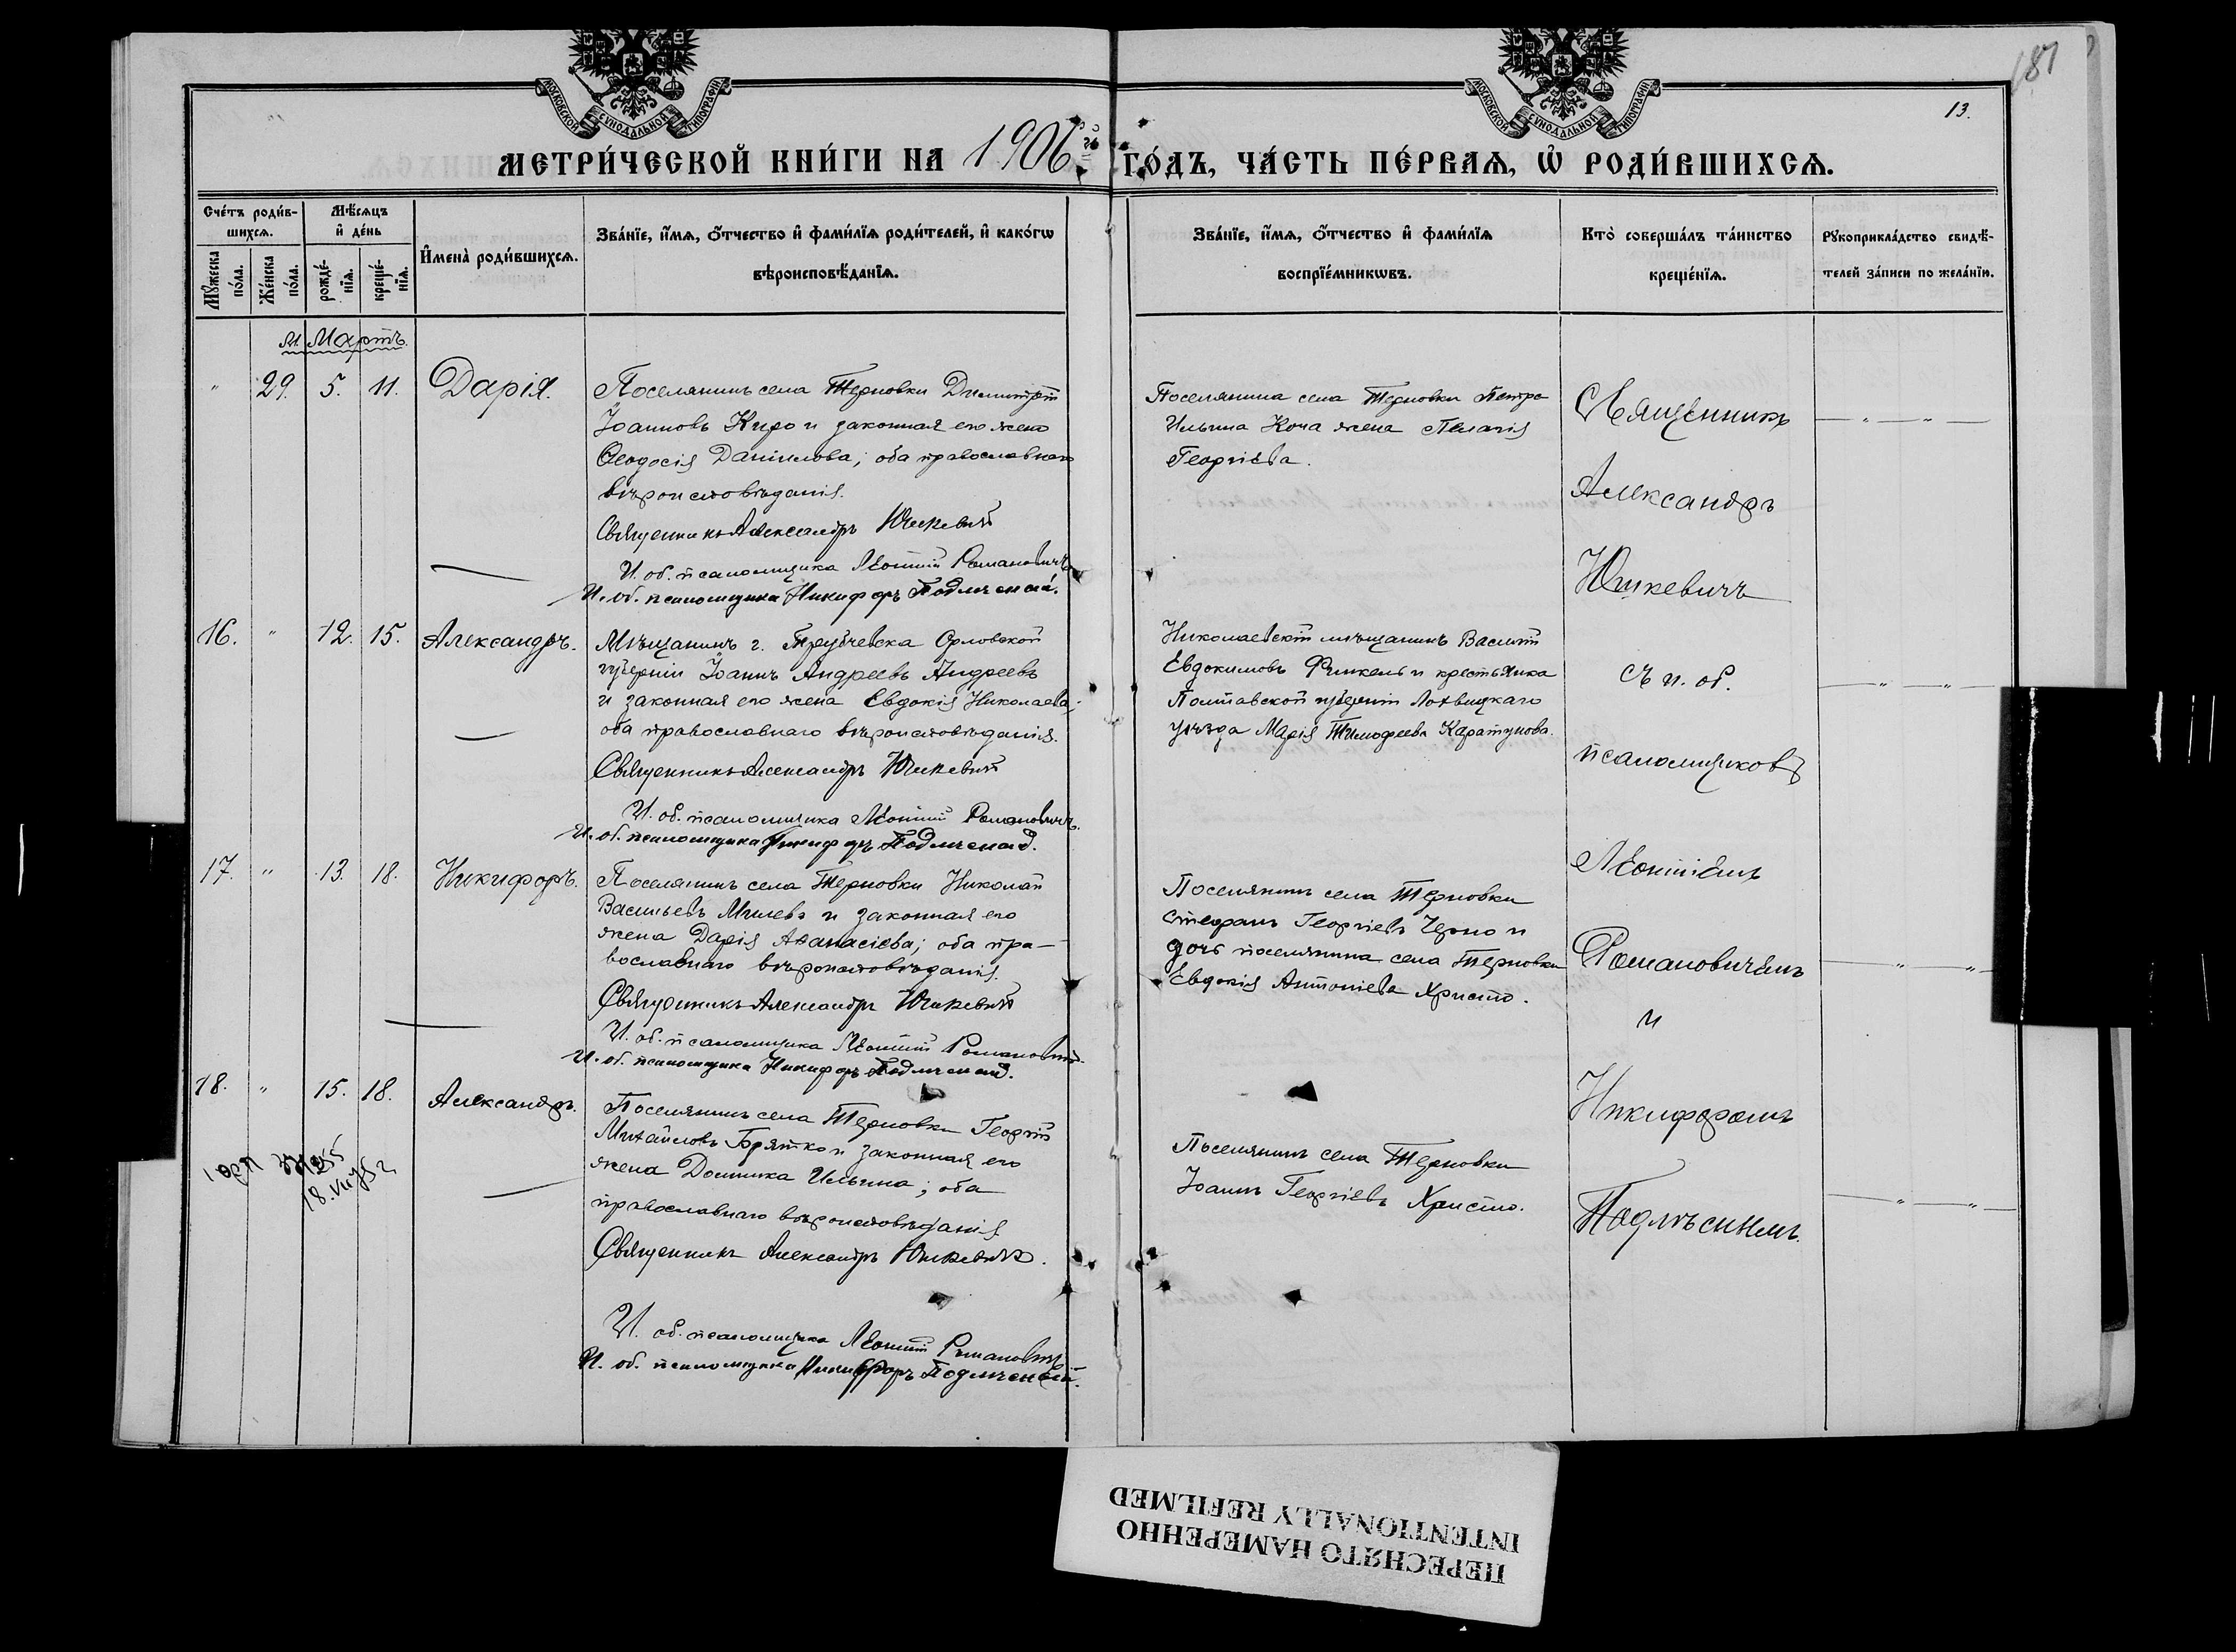 187
13.
МОСКОВСКОЙ СѴНОДАЛЬНОЙ ТИПОГРАФІИ
МОСКОВСКОЙ СѴНОДАЛЬНОЙ ТИПОГРАФІИ
МЕТРИ́ЧЕСКОЙ КНИ́ГИ НА 1906й ГО́ДЪ, ЧА́СТЬ ПЕ́РВАѦ, Ѡ РОДИ́ВШИХСѦ.
Сче́тъ роди́в-
шихсѧ.
Мꙋ́жеска по́ла.
Же́нска по́ла.
Мѣ́сѧцъ
и҆ де́нь
рожде́-
нїѧ.
креще́-
нїѧ.
И҆мена̀ роди́вшихсѧ.
Зва́нїе, и҆́мѧ, ѻ҆́тчество и҆ фами́лїѧ роди́телей, и҆ како́гѡ
вѣроисповѣ́данїѧ.
Зва́нїе, и҆́мѧ, ѻ҆́тчество и҆ фами́лїѧ
воспрїе́мникѡвъ.
Кто̀ соверша́лъ та́инство
креще́нїѧ.
Рꙋкоприкла́дство свидѣ́-
телей за́писи по жела́нїю.
М. Мартъ.
" 29. 5. 11. Дарія.
Поселянинъ села Терновки Димитрій
Іоанновъ Киро и законная его жена
Ѳеодосія Даніилова; оба православнаго
вѣроисповѣданія.
Священникъ Александръ Юшкевичъ
И. об. псаломщика Леонтій Романовичъ
И. об. псаломщика Никифоръ Подлѣсный.
Поселянина села Терновки Петра
Ильина Коча жена Пелагія
Георгіева.
Священникъ
Александръ
Юшкевичъ
съ и. об.
псаломщиковъ
Леонтіемъ
Романовичемъ
и
Никифоромъ
Подлѣснымъ.
16. " 12. 15. Александръ.
Мѣщанинъ г. Трубчевска Орловской
губерніи Іоаннъ Андреевъ Андреевъ
и законная его жена Евдокія Николаева;
оба православнаго вѣроисповѣданія.
Священникъ Александръ Юшкевичъ
И. об. псаломщика Леонтій Романовичъ.
И. об. псаломщика Никифоръ Подлѣсный.
Николаевскій мѣщанинъ Василій
Евдокимовъ Финкель и крестьянка
Полтавской губерніи Лохвицкаго
уѣзда Марія Тимофеева Каратунова.
17. " 13. 18. Никифоръ.
Поселянинъ села Терновки Николай
Васильевъ Милевъ и законная его
жена Дарія Аѳанасіева; оба пра-
вославнаго вѣроисповѣданія.
Священникъ Александръ Юшкевичъ
И. об. псаломщика Леонтій Романовичъ.
И. об. псаломщика Никифоръ Подлѣсный.
Поселянинъ села Терновки
Стефанъ Георгіевъ Черно и
дочь поселянина села Терновки
Евдокія Антоніева Христо.
18. " 15. 18. Александръ.
18.VII 75 г.
Поселянинъ села Терновки Георгій
Михайловъ Брятко и законная его
жена Домника Ильина; оба
православнаго вѣроисповѣданія
Священникъ Александръ Юшкевичъ.
И. об. псаломщика Леонтій Романовичъ
И. об. псаломщика Никифоръ Подлѣсный.
Поселянинъ села Терновки
Іоаннъ Георгіевъ Христо.
ПЕРЕСНЯТО НАМЕРЕННО
INTENTIONALLY REFILMED